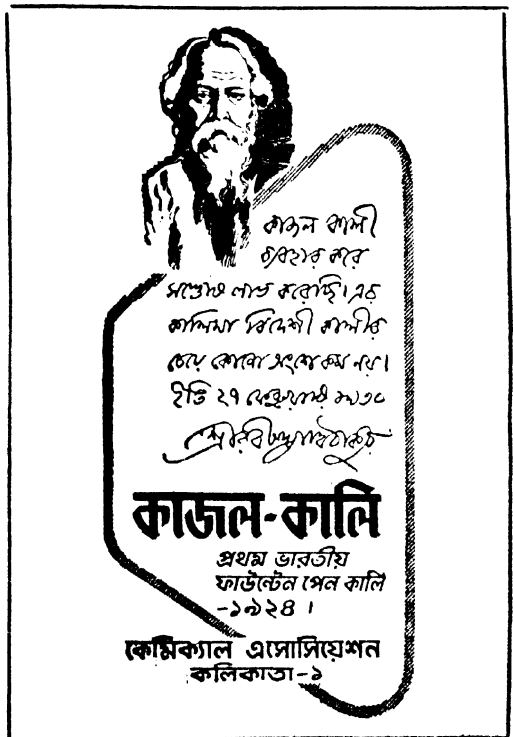 কাজল কালী
ব্যবহার করে
সন্তোষ লাভ করেছি। এর
কালিমা বিদেশী কালীর
চেয়ে কোনো অংশে কম নয়।
ইতি ২৭ ফেব্রুয়ারি ১৯৩০
শ্রীরবীন্দ্রনাথ ঠাকুর
কাজল-কালি
প্রথম ভারতীয়
ফাউন্টেন পেন কালি
-১৯২৪ ।
কেমিক্যাল এসোসিয়েশন
কলিকাতা-১